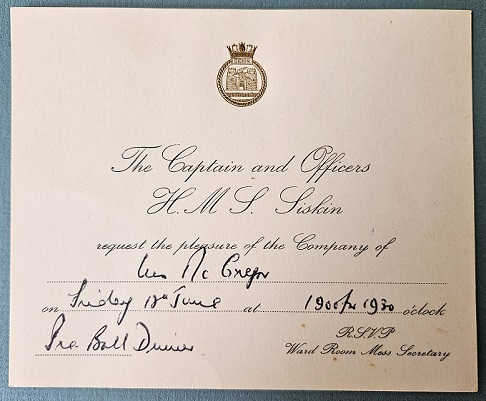 The Captain and Officers
H.M.S. Siskin
request the pleasure of the Company of
McGregor
on Friday 18th June at 1900 for 1930 o'clock
Pre Ball Dinner
R.S.V.P
Ward Room Mess Secretary